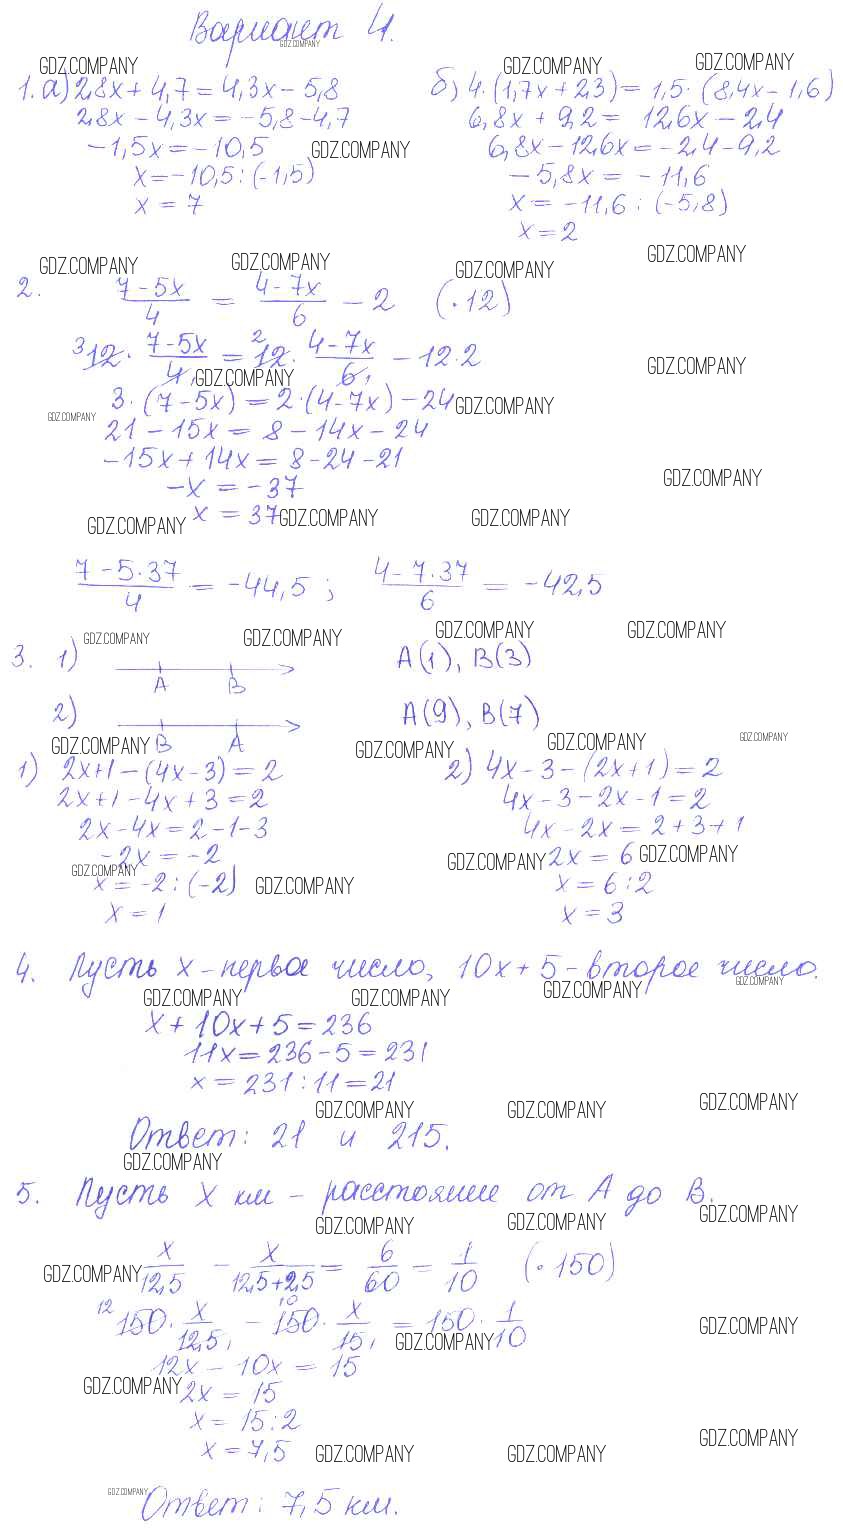 Вариант 4.
1. а) 2,8x + 4,7 = 4,3x - 5,8
2,8x - 4,3x = -5,8 - 4,7
-1,5x = -10,5
x = -10,5 : (-1,5)
x = 7
б) 4·(1,7x + 2,3) = 1,5·(8,4x - 1,6)
6,8x + 9,2 = 12,6x - 2,4
6,8x - 12,6x = -2,4 - 9,2
-5,8x = -11,6
x = -11,6 : (-5,8)
x = 2
2. (7-5x)/4 = (4-7x)/6 - 2 (·12)
³12 · (7-5x)/4₁ = ²12 · (4-7x)/6₁ - 12·2
3·(7-5x) = 2·(4-7x) - 24
21 - 15x = 8 - 14x - 24
-15x + 14x = 8 - 24 - 21
-x = -37
x = 37
(7-5·37)/4 = -44,5 ; (4-7·37)/6 = -42,5
3. 1) A B A(1), B(3)
2) B A A(9), B(7)
1) 2x+1-(4x-3) = 2
2x+1-4x+3 = 2
2x-4x = 2-1-3
-2x = -2
x = -2 : (-2)
x = 1
2) 4x-3-(2x+1) = 2
4x-3-2x-1 = 2
4x-2x = 2+3+1
2x = 6
x = 6:2
x = 3
4. Пусть x - первое число, 10x+5 - второе число.
x + 10x + 5 = 236
11x = 236-5 = 231
x = 231 : 11 = 21
Ответ: 21 и 215.
5. Пусть x км - расстояние от A до B.
x/12,5 - x/(12,5+2,5) = 6/60 = 1/10 (·150)
¹²150 · x/12,5₁ - ¹⁰150 · x/15₁ = 150 · 1/10
12x - 10x = 15
2x = 15
x = 15:2
x = 7,5
Ответ: 7,5 км.
GDZ.COMPANY